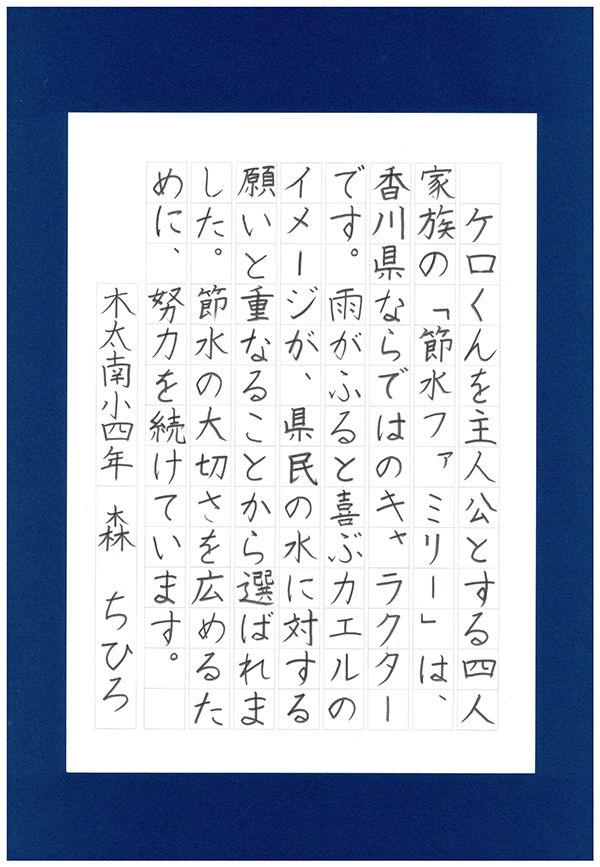 ケロくんを主人公とする四人
家族の「節水ファミリー」は、
香川県ならではのキャラクター
です。雨がふると喜ぶカエルの
イメージが、県民の水に対する
願いと重なることから選ばれま
した。節水の大切さを広めるた
めに、努力を続けています。
木太南小四年 森 ちひろ